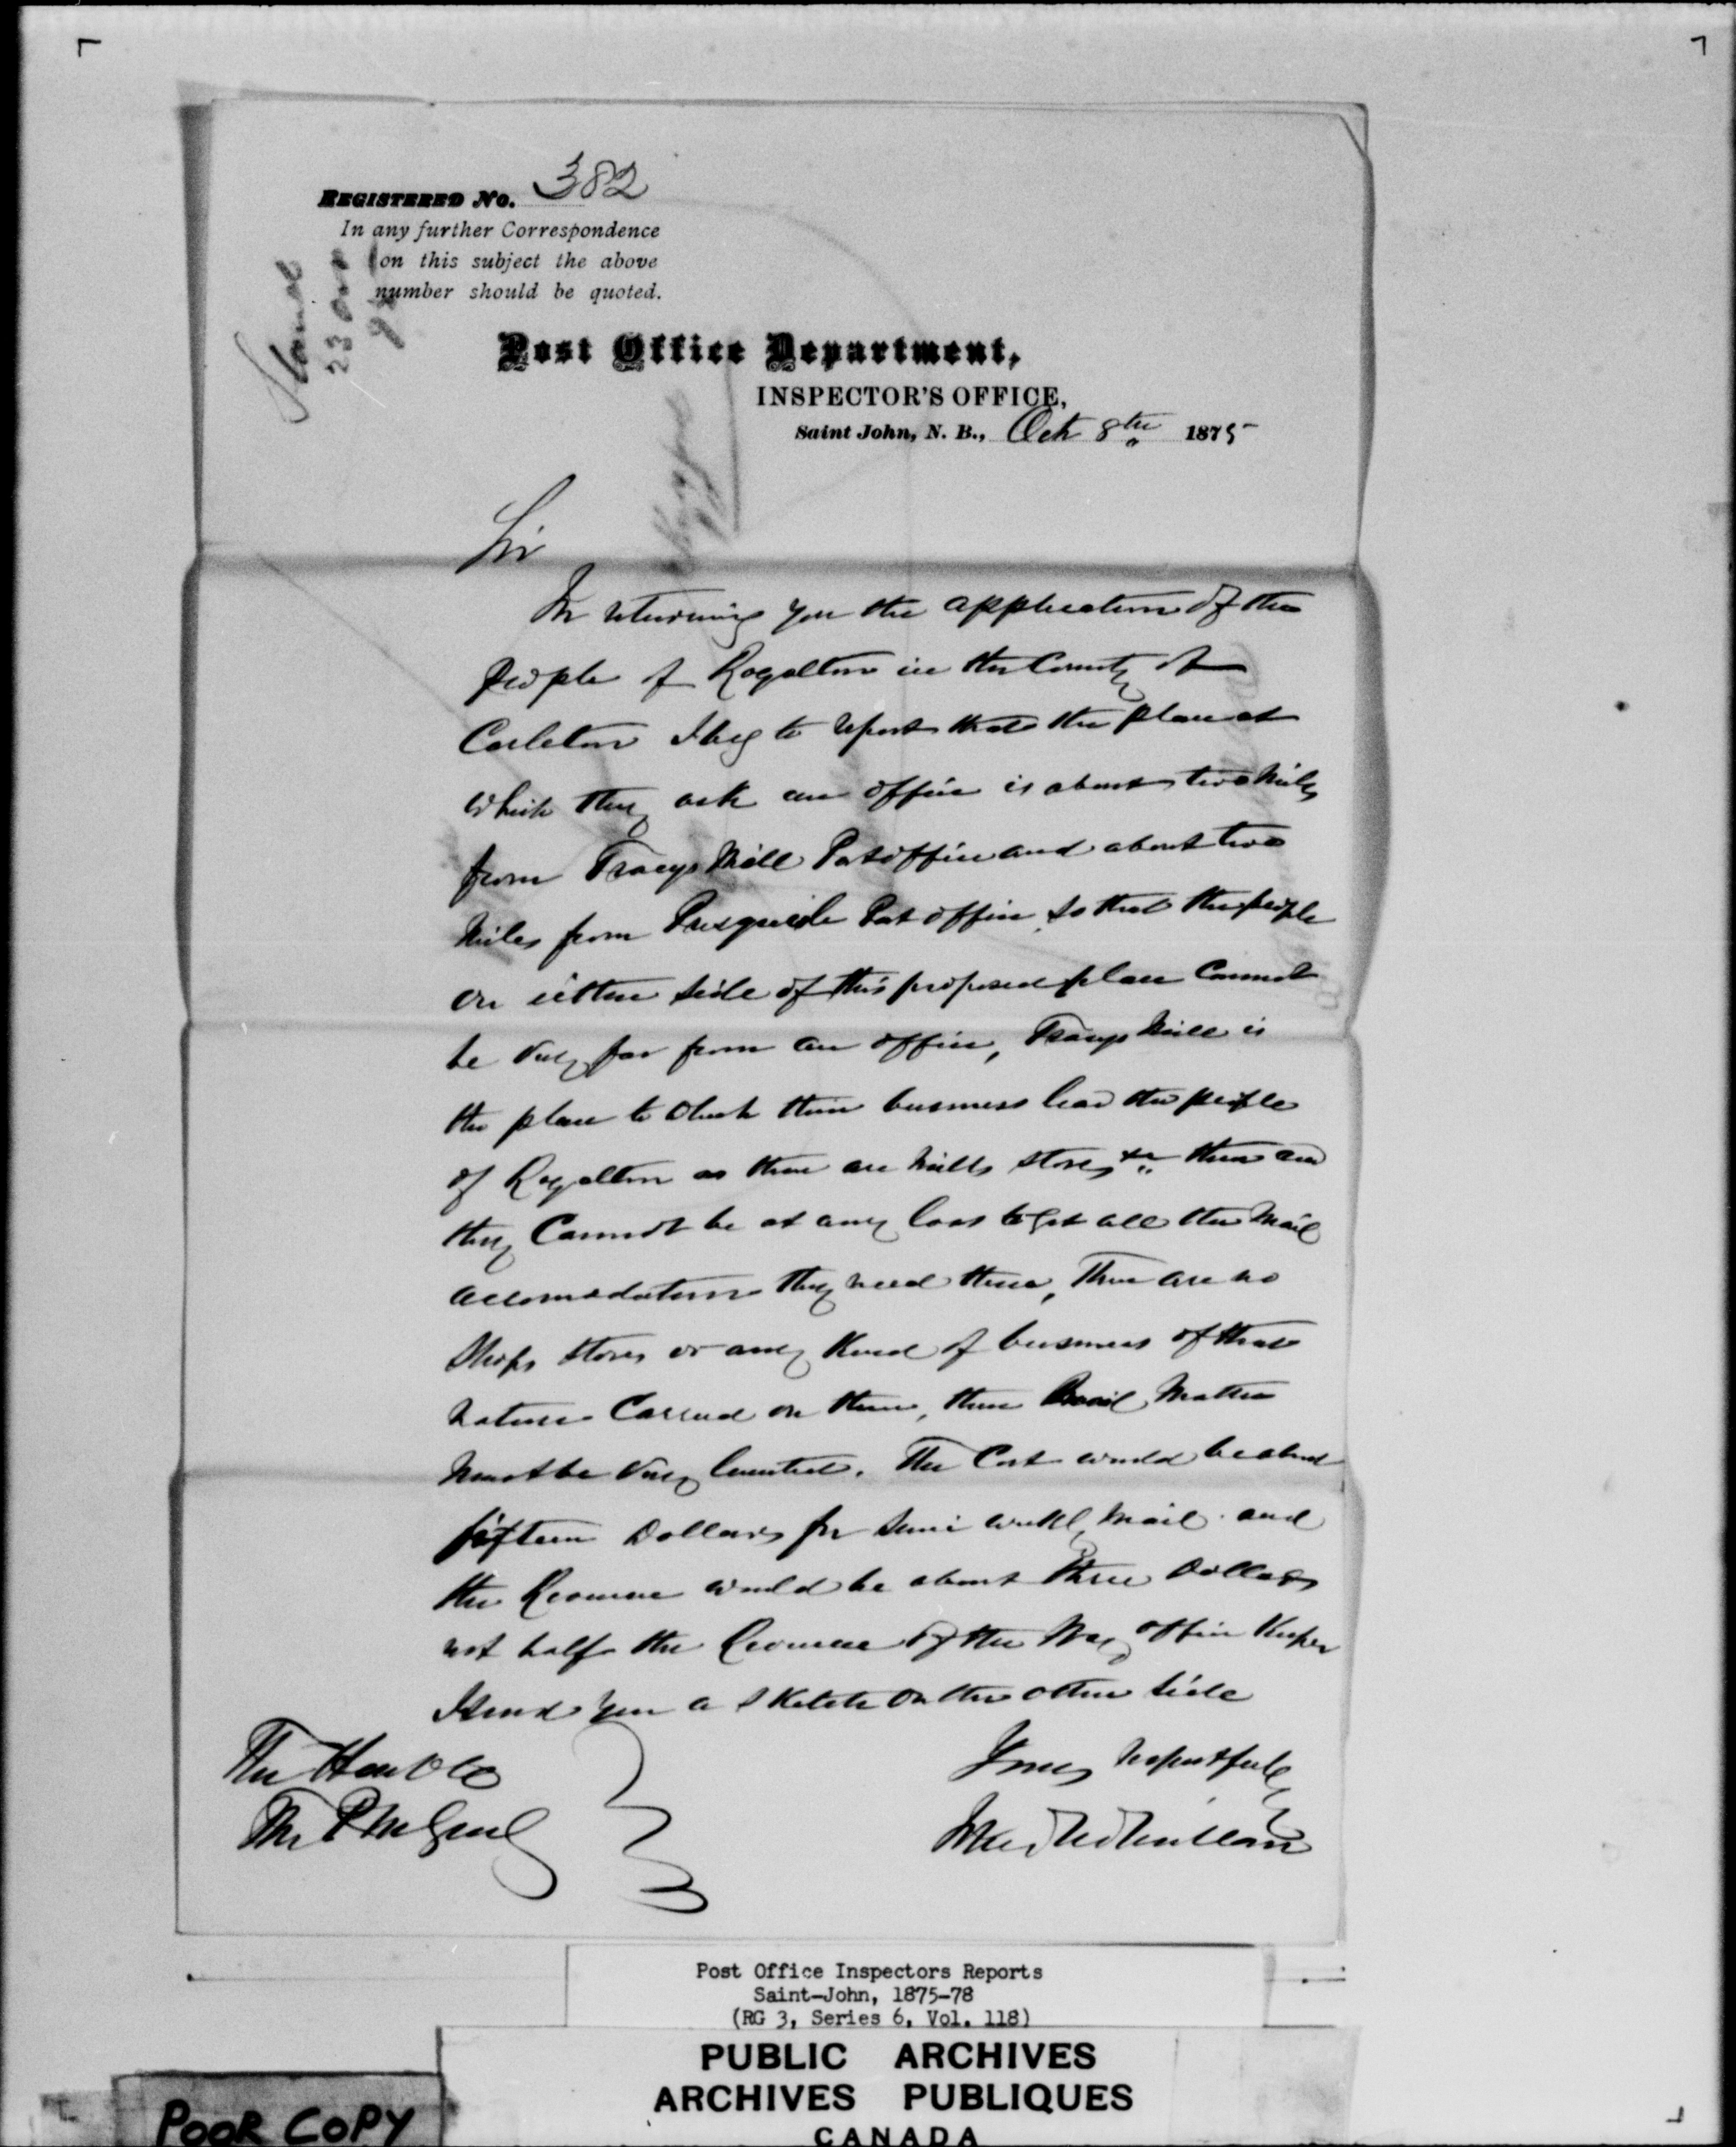 REGISTERED No. 382
In any further Correspondence
on this subject the above
number should be quoted.
Post Office Department,
INSPECTOR'S OFFICE,
Saint John, N. B., Oct 8th 1875
Sir
In returning you the application of the
people of Royalton in the County of
Carleton I beg to report that the place at
which they ask an office is about two miles
from Tracys Mill Post office and about two
miles from Presquile Post office, so that the people
on either side of this proposed place cannot
be very far from an office, Tracys Mill is
the place to which their business lead the people
of Royalton as there are mills stores &c there and
they Cannot be at any loss to get all the mail
accomodation they need there, There are no
Shops stores or any kind of business of that
nature Carried on there, their Mail Matter
must be very limited. The Cost would be about
fifteen Dollars for semi weekly mail and
the Revenue would be about three Dollars
not half the Revenue of the Way office Keeper
I send you a sketch on the other side
Yours respectfully
The Honble
The P M Genl
John McMillan
Post Office Inspectors Reports
Saint-John, 1875-78
(RG 3, Series 6, Vol. 118)
PUBLIC ARCHIVES
ARCHIVES PUBLIQUES
CANADA
POOR COPY